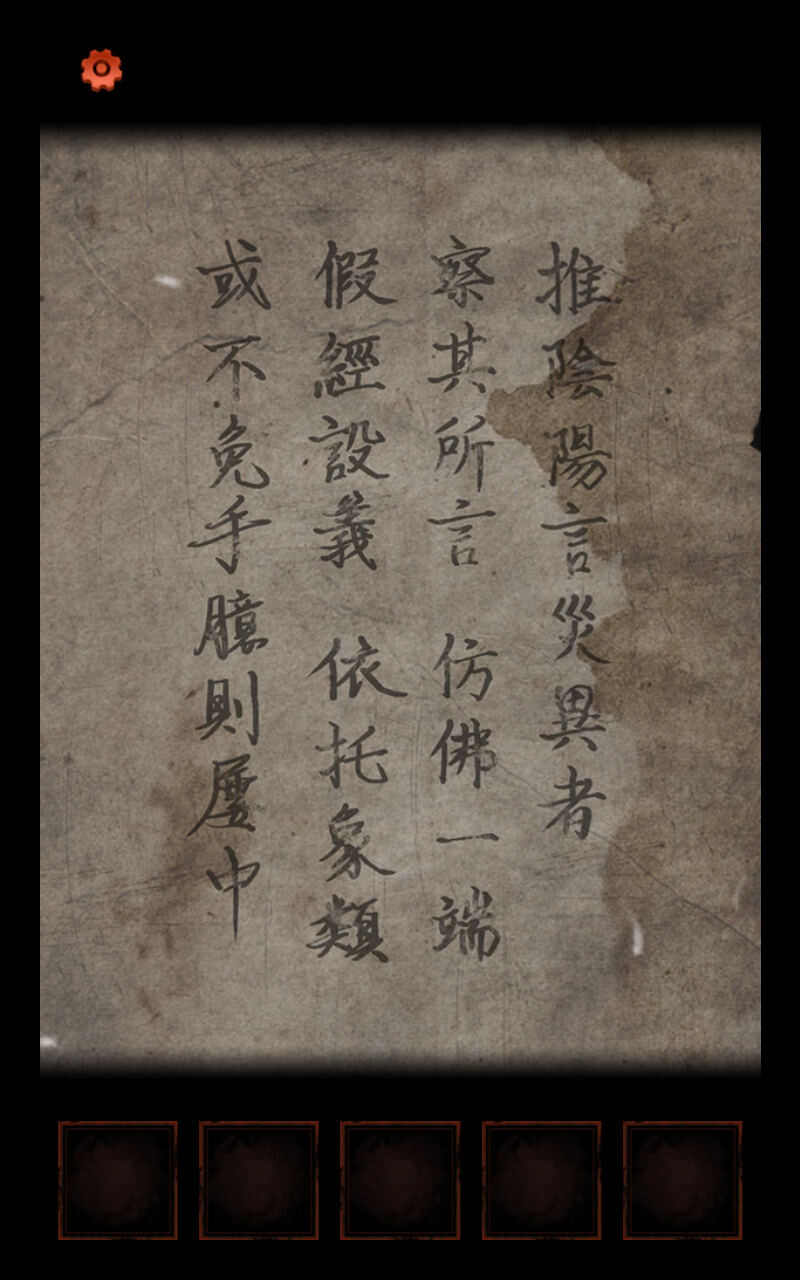 推陰陽言災異者
察其所言 仿佛一端
假經設義 依托象類
或不免手臆則屢中